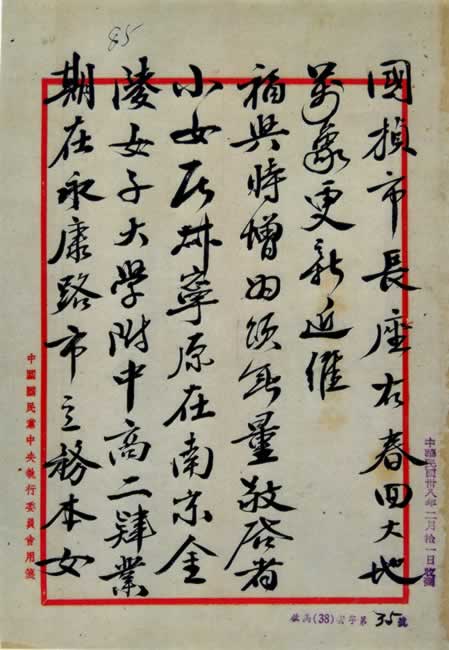 85
國楨市長座右春回大地
萬象更新近維
福與時增為頌無量敬啓者
小女 寧原在南京金
陵女子大學附中高二肄業
期在永康路市立務本女
中國國民黨中央執行委員會用箋
中華民國卅八年二月拾一日收
(38) 字第35號